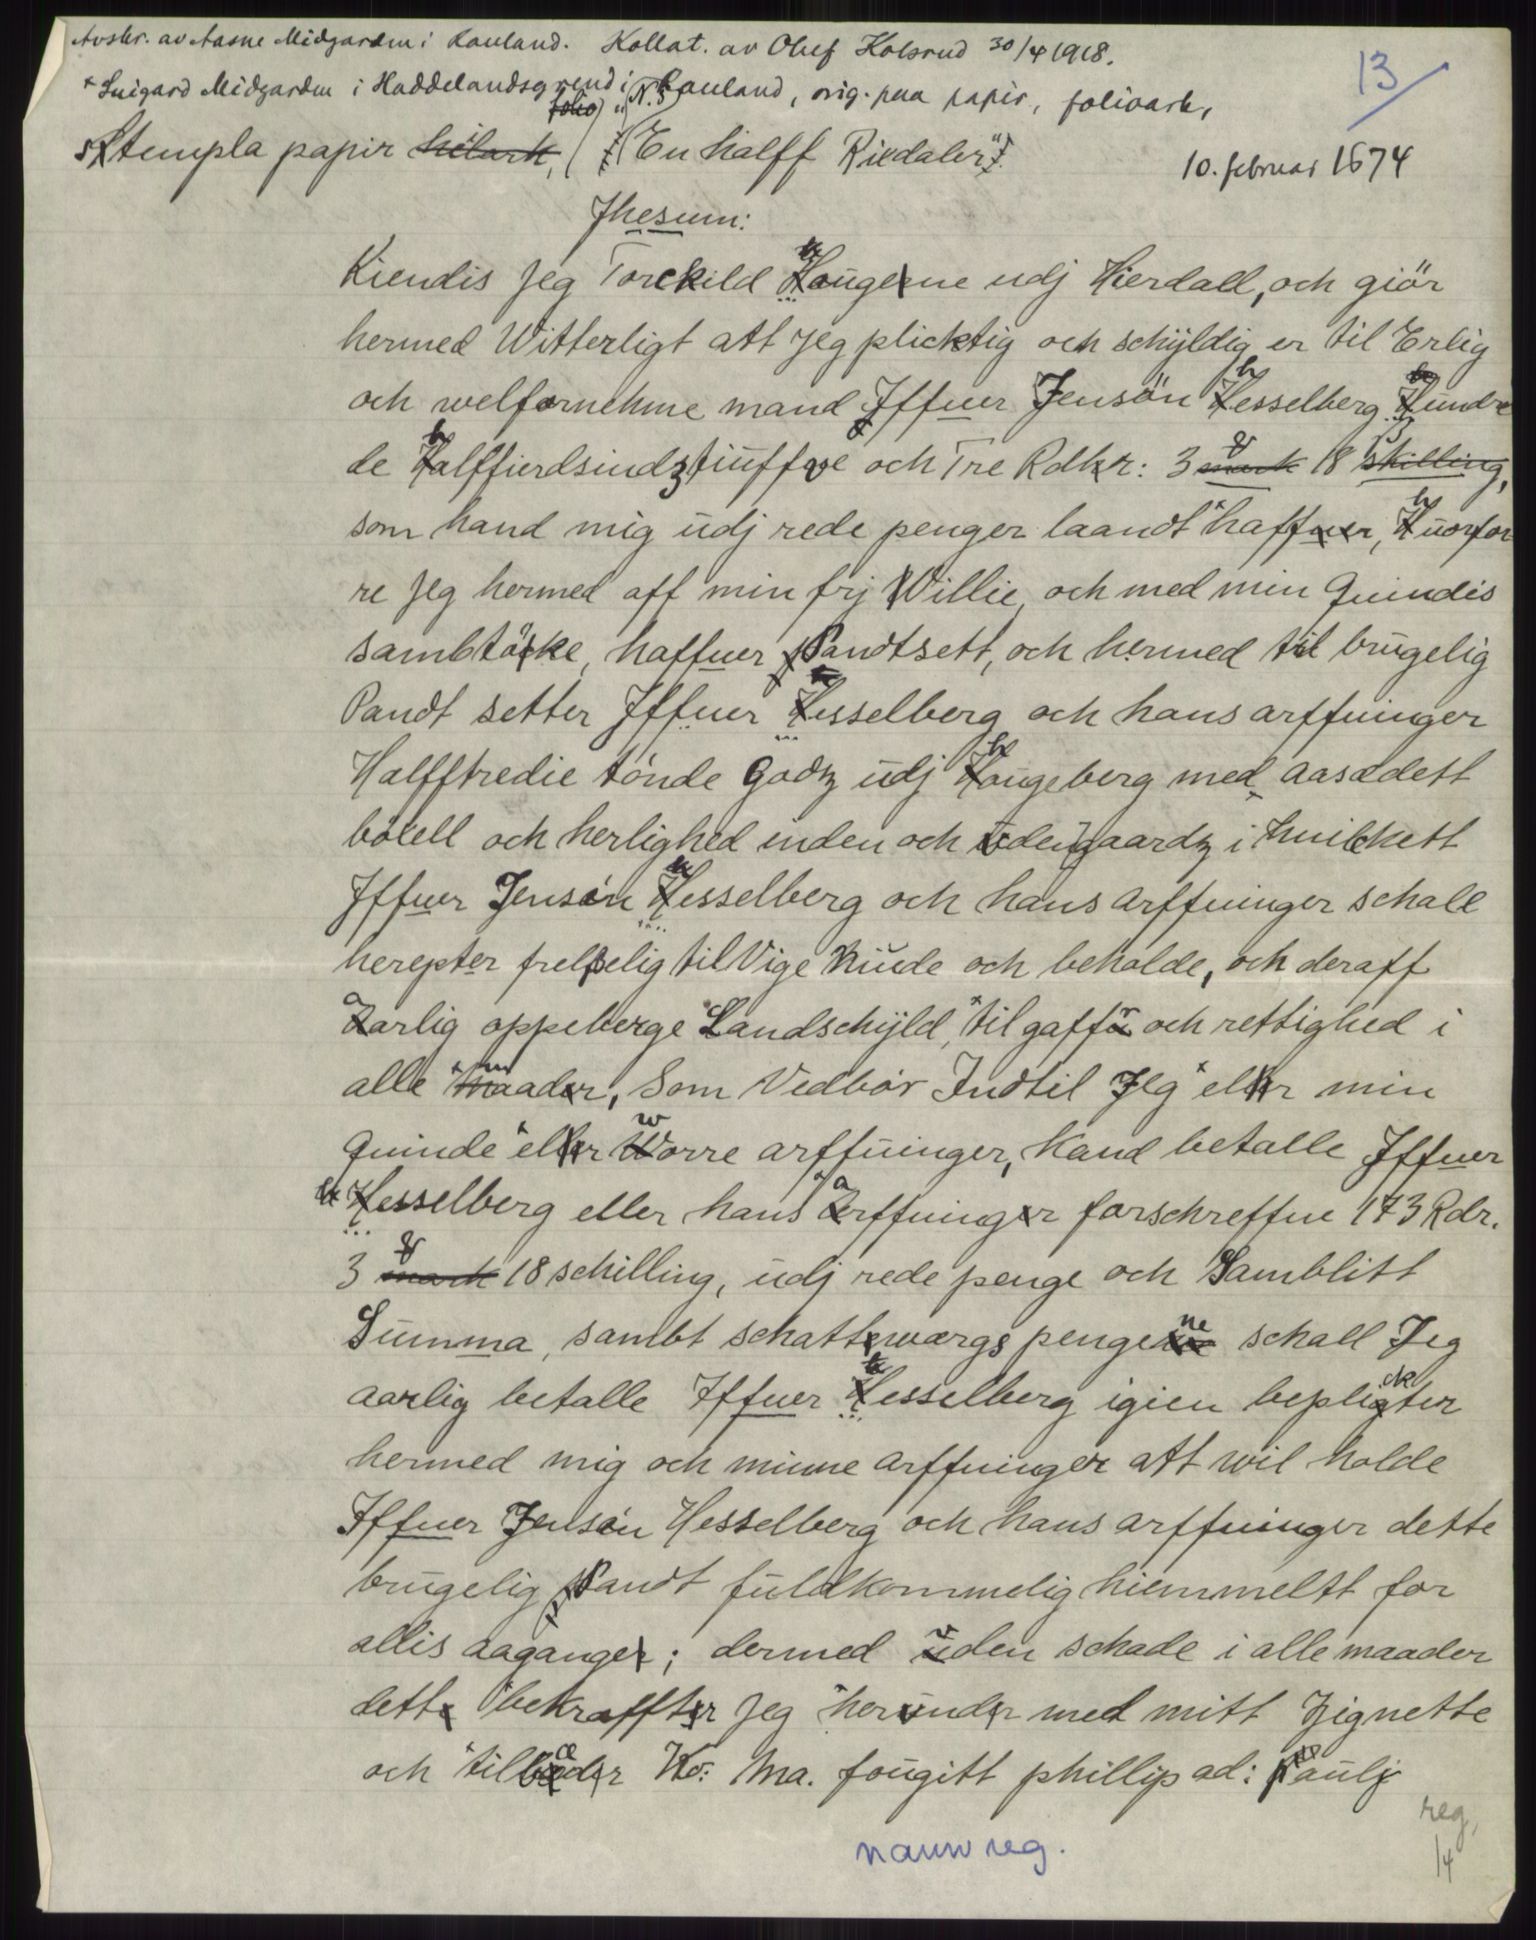 Avskr. av Aasne Midgarden i Rauland. Kollat. av Oluf Kolsrud 30/4 1918.
13
* Snigard Midgarden i Haddelandsgrend i Rauland, orig. paa papir, folioark,
Stempla papir heilark, (folio) (N.S) "En halff Rixdaler"
10. februar 1674
Jhesum:
Kiendis Jeg Torckild hougene udj Hierdall, och giör
hermed Witterligt att Jeg plicktig och schyldig er til Erlig
och welfornehme mand Iffuer Jensön hesselberg hundre
de halffierdsindztiuffue och Tre Rdlr: 3 mark 18 skilling,
som hand mig udj rede penger laandt haffuer, huorfor
re Jeg hermed aff min frj Willie, och med min Quindis
sambtöcke, haffuer Pandtsett, och hermed til brugelig
Pandt setter Iffuer hesselberg och hans arffuinger
Halfftredie tönde Godtz udj hougeberg med aasædett
böxell och herlighed inden och uden gaardz i huilckett
Iffuer Jensön hesselberg och hans arffuinger schall
herepter frelselig til Vige Niude och beholde, och deraff
aarlig oppeberge Landschyld, tilgaffuer och rettighed i
alle maader, Som Vedbör Indtil Jeg eller min
Quinde eller worre arffuinger, kand betalle Iffuer
hesselberg eller hans arffuinger forschreffne 173 Rdr.
3 mark 18 schilling, udj rede penge och Samblitt
Summa, sambt schattværgs pengene schall Jeg
aarlig betalle Iffuer hesselberg igien beplickter
hermed mig och minne arffuinger att wil holde
Iffuer Jensön Hesselberg och hans arffuinger dette
brugelig Pandt fuldkommelig hiemmeltt for
allis aagange; dermed uden schade i alle maader
dett bekraffter Jeg herunder med mitt Zignette
och tilbeder Ko: Ma. fougitt phillip ad: Paulj
navnreg.
reg,
14